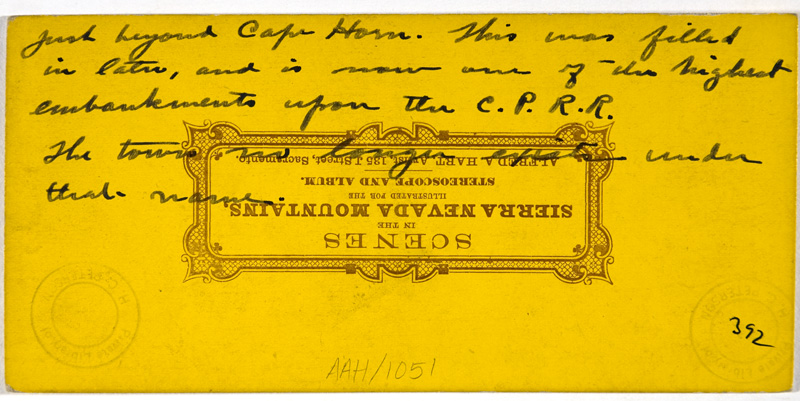 just beyond Cape Horn. This was filled
in later, and is now one of the highest
embankments upon the C. P. R. R.
The town no longer exists under
that name.
SCENES
IN THE
SIERRA NEVADA MOUNTAINS,
ILLUSTRATED FOR THE
STEREOSCOPE AND ALBUM.
ALFRED A. HART, Artist, 135 J Street, Sacramento.
H. C. PETERSON
H. C. PETERSON
392
AAH/1051